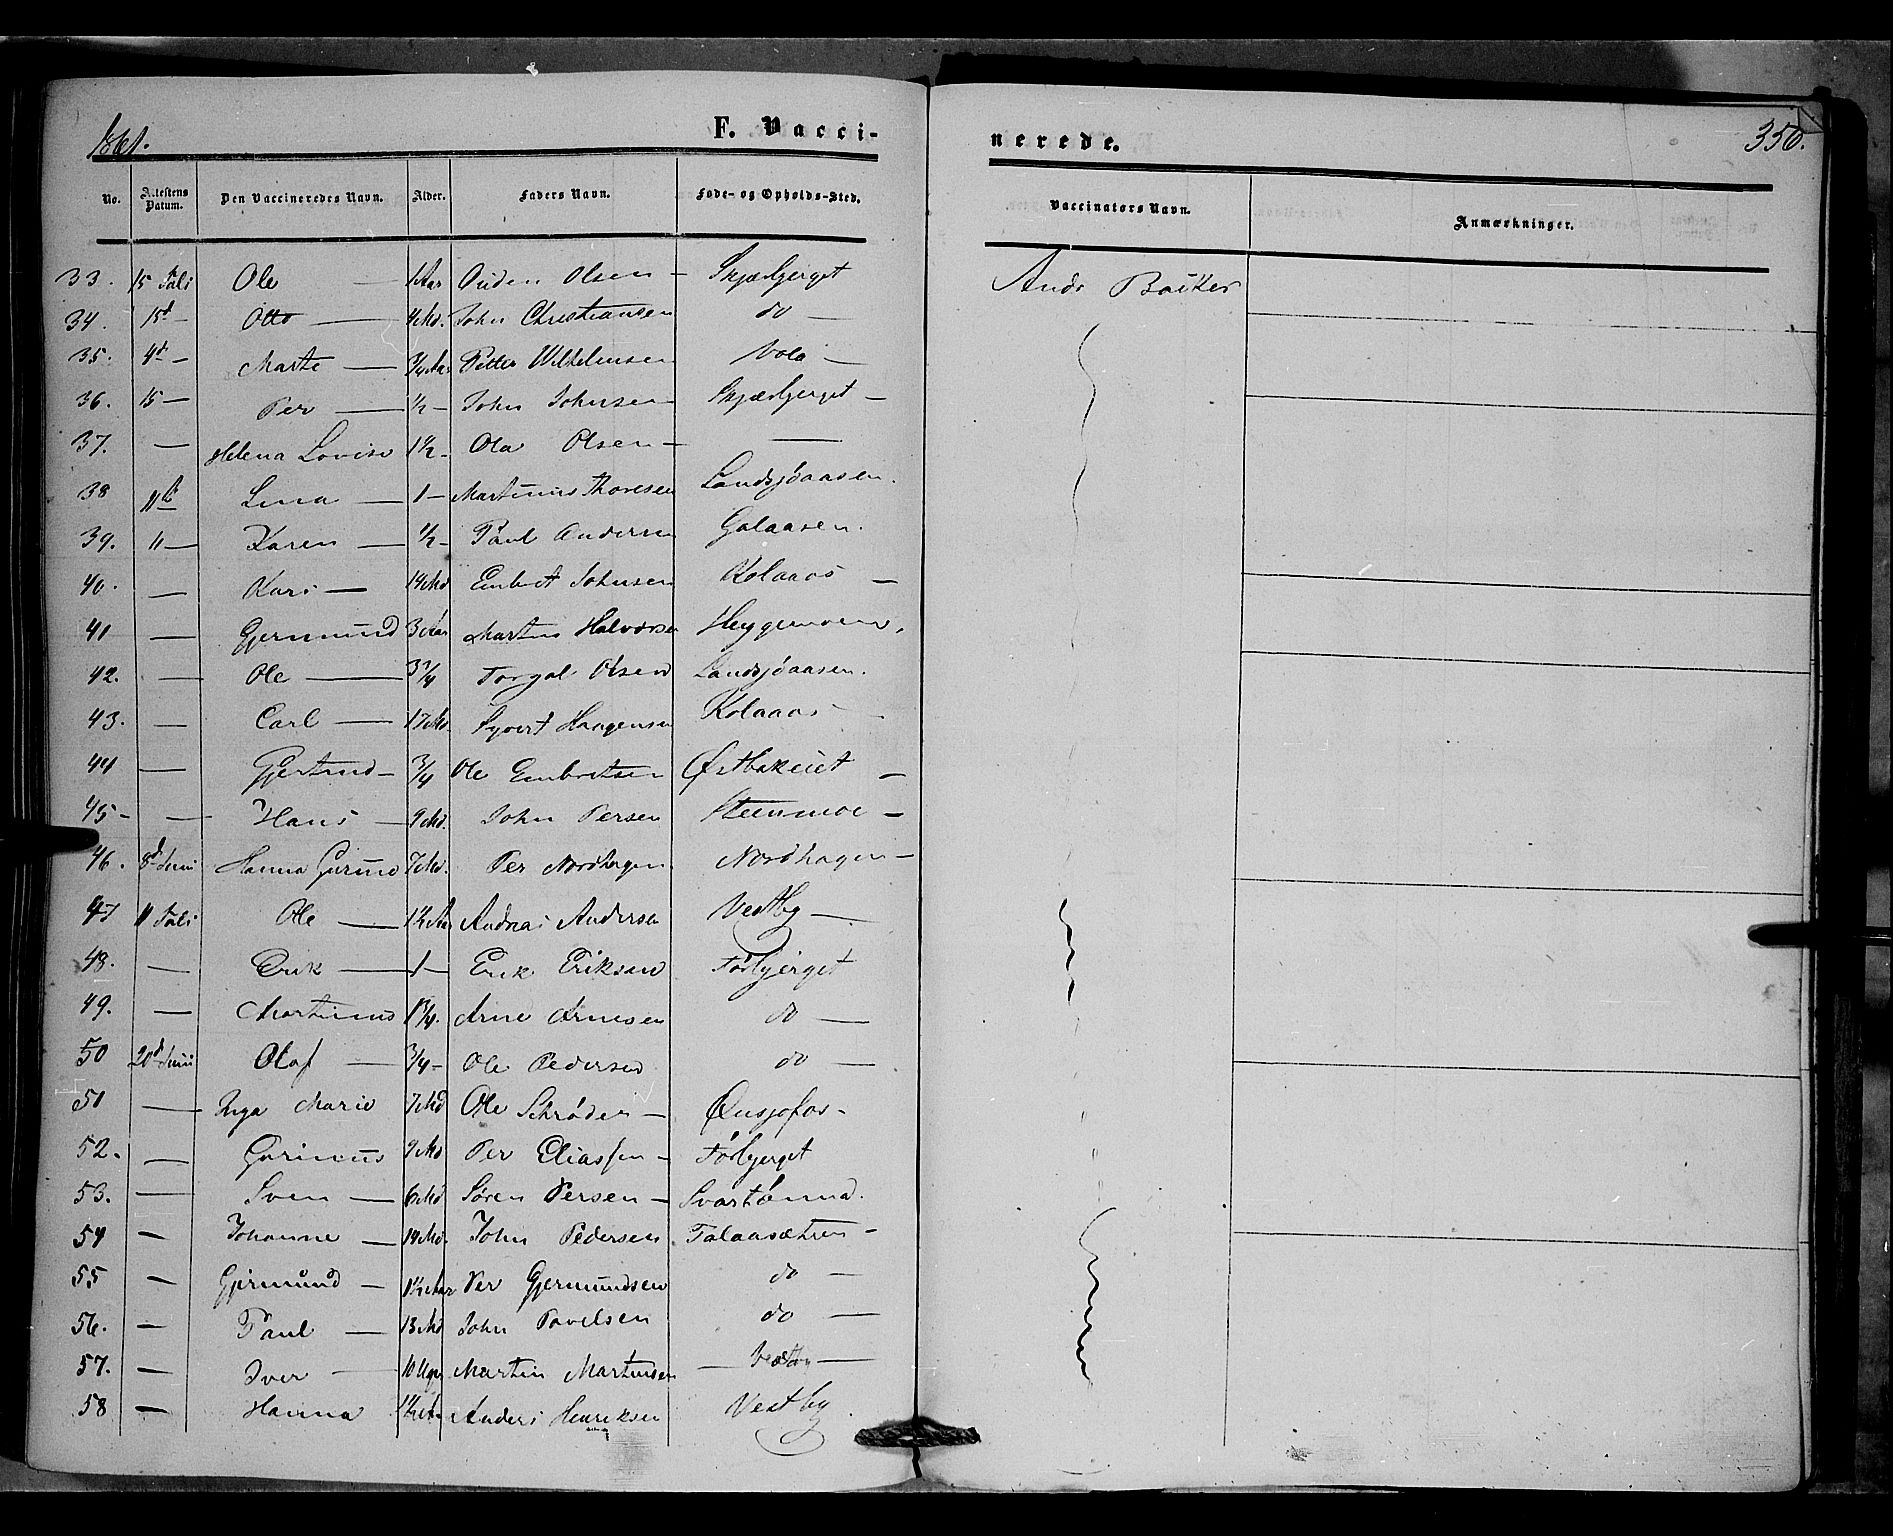 1861. F. Vacci- nerede. 350.
No. Attestens Datum. Den Vaccineredes Navn. Alder. Faders Navn. Føde- og Opholds-Sted. Vaccinators Navn. Anmærkninger.
33. 15 Juli Ole — 1 Aar Ouden Olsen — Skjærbjerget Andr
34. 15d — Otto — Md. John Christiansen do —
35. 4d — Marte — 3/4 Aar Petter Wilhelmsen Vola —
36. 15 — Per — 1/2 — John Johnsen Skjærbjerget —
37. — Helena Lovise 1 1/2 — Ola Olsen — —
38 11te Lina — 1 — Martinus Thoresen Landsjøaasen.
39. 11 — Karen — 1/2 — Paul Andersen Galaasen.
40. — Kari — 14 Md Embret Johnsen Kolaaos —
41 — Gjermund 3 Aar Martin Halvorsen Heggemoen.
42. — Ole — 3 1/4 Torgal Olsen Landsjøaasen.
43. — Carl — 17 Md. Syvert Haagensen Kolaaos —
44 — Gjertrud — 3/4 Ole Embretsen Østbakeiet —
45 — — Hans — 9 Md. John Persen Steenmoe —
46. 8d Juni Hanna Gurine 7 Md. Per Nordhagen Nordhagen —
47 11 Juli Ole — 1 1/2 Aar Andreas Andersen Vestby —
48. — Erik — 1 — Erik Eriksen Førbjerget
49. — Martinus 1 3/4. Arne Arnesen do —
50 20d Juni Olaf — 3/4 — Ole Pedersen do —
51 — Inga Marie 7 Md Ole Schrøder —
52. — Gurinus 9 Md Per Eliassen — Førbjerget
53. — Sven — 6 Md Søren Persen — Svartønna.
54 — Johanne — 14 Md. John Pedersen Falaasætren —
55 — Gjermund — 1 1/2 Aar Per Gjermundsen do —
56. — Paul — 13 Md John Povelsen do —
57. — Iver — 10 Uger Martin Martinsen — Vestby —
58 — Hanna 1 1/2 A. Anders Henriksen Vestby